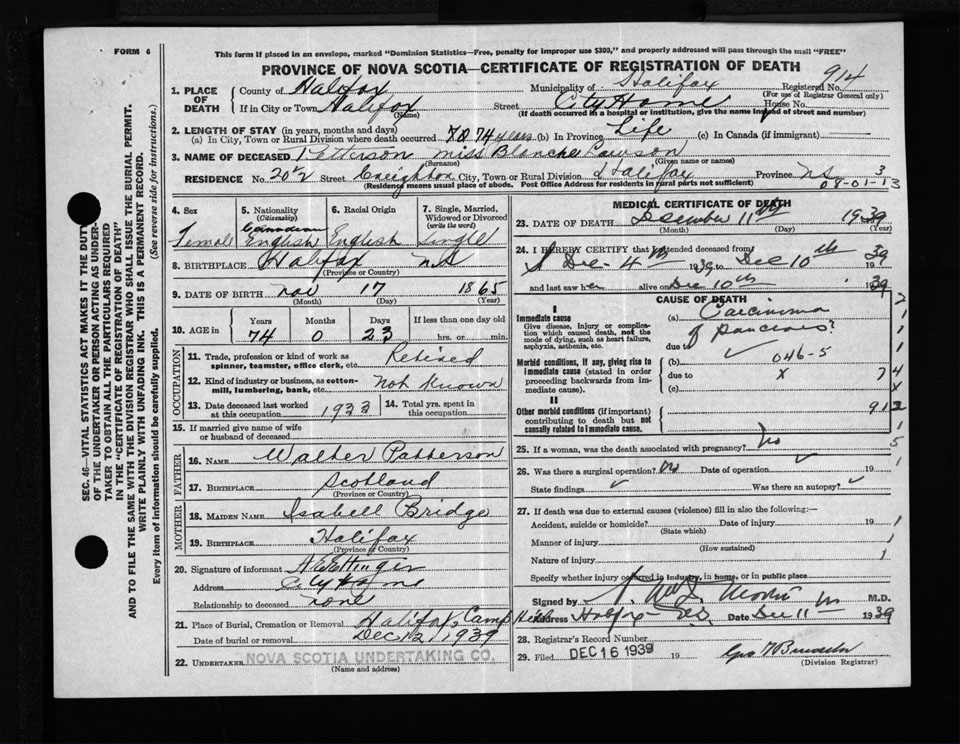 FORM 6
This form if placed in an envelope, marked "Dominion Statistics—Free, penalty for improper use $300," and properly addressed will pass through the mail "FREE"
PROVINCE OF NOVA SCOTIA—CERTIFICATE OF REGISTRATION OF DEATH
914
1. PLACE OF DEATH County of Halifax Municipality of Halifax Registered No.
(For use of Registrar General only)
If in City or Town Halifax Street City Home House No.
(Name) (If death occurred in a hospital or institution, give the name instead of street and number)
2. LENGTH OF STAY (in years, months and days)
(a) In City, Town or Rural Division where death occurred 74 years (b) In Province Life (c) In Canada (if immigrant)
3. NAME OF DECEASED Patterson Miss Blanche Pawson
(Surname) (Given name or names)
RESIDENCE No. 202 Street Creighton City, Town or Rural Division Halifax Province N.S. 3
(Residency means usual place of abode. Post Office Address for residents in rural parts not sufficient) 08-01-13
4. Sex 5. Nationality (Citizenship) 6. Racial Origin 7. Single, Married, Widowed or Divorced (write the word)
Canadian
Female English English Single
8. BIRTHPLACE Halifax N.S.
(Province or Country)
9. DATE OF BIRTH Nov 17 1865
(Month) (Day) (Year)
10. AGE in Years Months Days If less than one day old
74 0 23 hrs. or min.
OCCUPATION
11. Trade, profession or kind of work as spinner, teamster, office clerk, etc. Retired
12. Kind of industry or business, as cotton-mill, lumbering, bank, etc. Not Known
13. Date deceased last worked at this occupation 1933 14. Total yrs. spent in this occupation
15. If married give name of wife or husband of deceased
FATHER
16. NAME Walter Patterson
17. BIRTHPLACE Scotland
(Province or Country)
MOTHER
18. MAIDEN NAME Isabell Bridge
19. BIRTHPLACE Halifax
(Province or Country)
20. Signature of informant Ettinger
Address City Home
Relationship to deceased none
21. Place of Burial, Cremation or Removal Halifax, Camp Hill
Date of burial or removal Dec 12 1939
22. UNDERTAKER NOVA SCOTIA UNDERTAKING CO.
(Name and address)
MEDICAL CERTIFICATE OF DEATH
23. DATE OF DEATH December 11th 1939
(Month) (Day)
24. I HEREBY CERTIFY that I attended deceased from
Dec 4th 1939 to Dec 10th 1939
and last saw her alive on Dec 10th 1939
CAUSE OF DEATH
I
Immediate cause
Give disease, injury or complication which caused death, not the mode of dying, such as heart failure, asphyxia, asthenia, etc.
(a) Carcinoma of pancreas?
due to
Morbid conditions, if any, giving rise to immediate cause (stated in order proceeding backwards from immediate cause).
(b) 046-5
due to x 7
(c)
II
Other morbid conditions (if important) contributing to death but not causally related to immediate cause.
912
25. If a woman, was the death associated with pregnancy? No
26. Was there a surgical operation? No Date of operation 19
State findings Was there an autopsy?
27. If death was due to external causes (violence) fill in also the following:—
Accident, suicide or homicide? Date of injury 19
(State which)
Manner of injury
(How sustained)
Nature of injury
Specify whether injury occurred in industry, in home, or in public place
Signed by M.D.
Address Halifax N.S. Date Dec 11th 1939
28. Registrar's Record Number
29. Filed DEC 16 1939 19
(Division Registrar)
SEC. 46—VITAL STATISTICS ACT MAKES IT THE DUTY
OF THE UNDERTAKER OR PERSON ACTING AS UNDER-
TAKER TO OBTAIN ALL THE PARTICULARS REQUIRED
IN THE "CERTIFICATE OF REGISTRATION OF DEATH"
AND TO FILE THE SAME WITH THE DIVISION REGISTRAR WHO SHALL ISSUE THE BURIAL PERMIT.
WRITE PLAINLY WITH UNFADING INK. THIS IS A PERMANENT RECORD.
Every item of information should be carefully supplied. (See reverse side for instructions.)